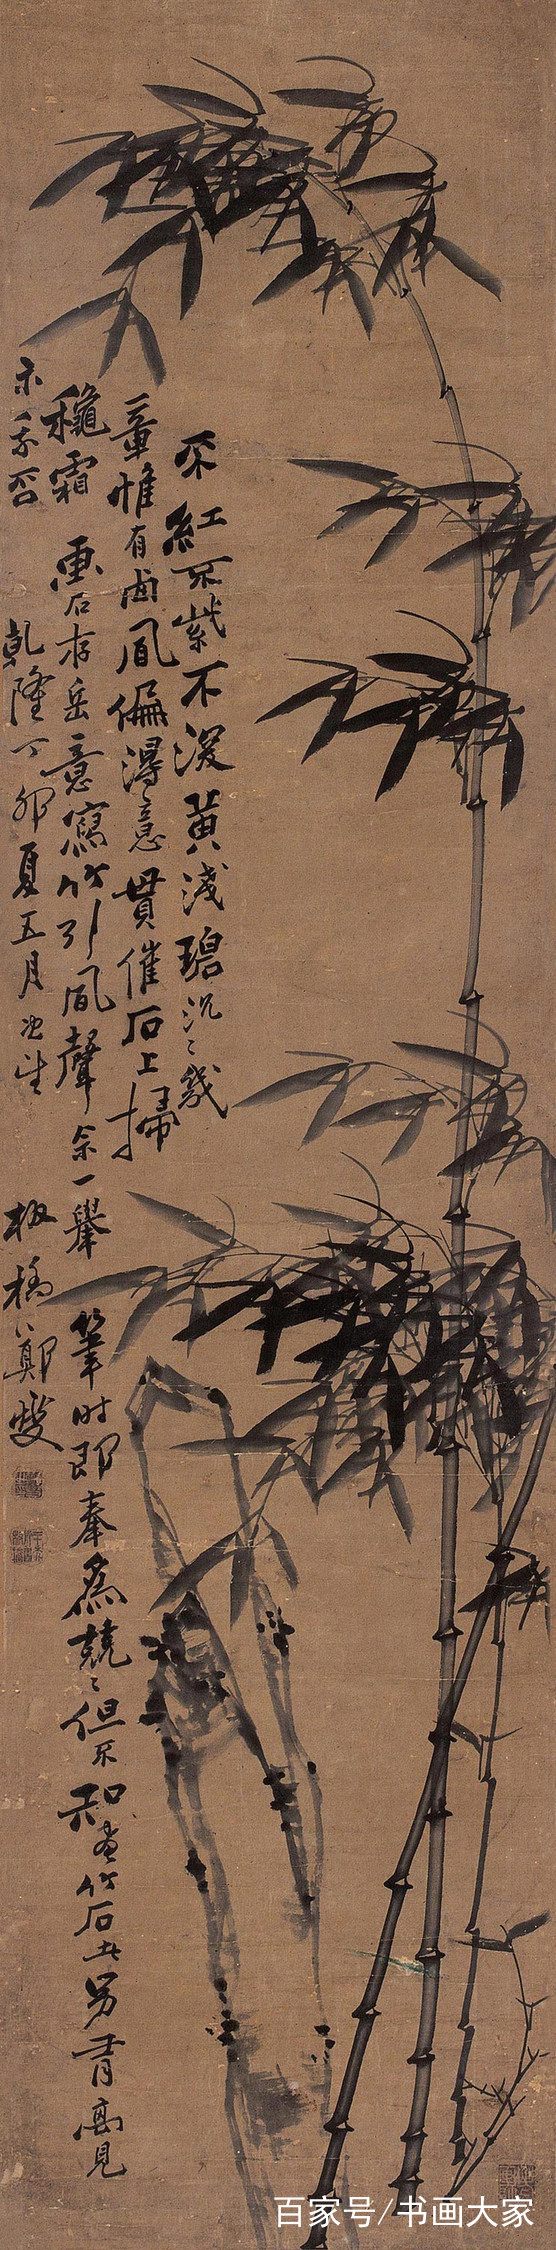 不紅不紫不深黃淺碧沉〻幾
章惟有鹵風偏得意貫催石上掃
龝霜 画石存岳意寫竹引風聲余一舉筆時即奉為兢〻但不知畫竹石者另有高見
示我否 乾隆丁卯夏五月 板橋鄭燮
百家号/书画大家